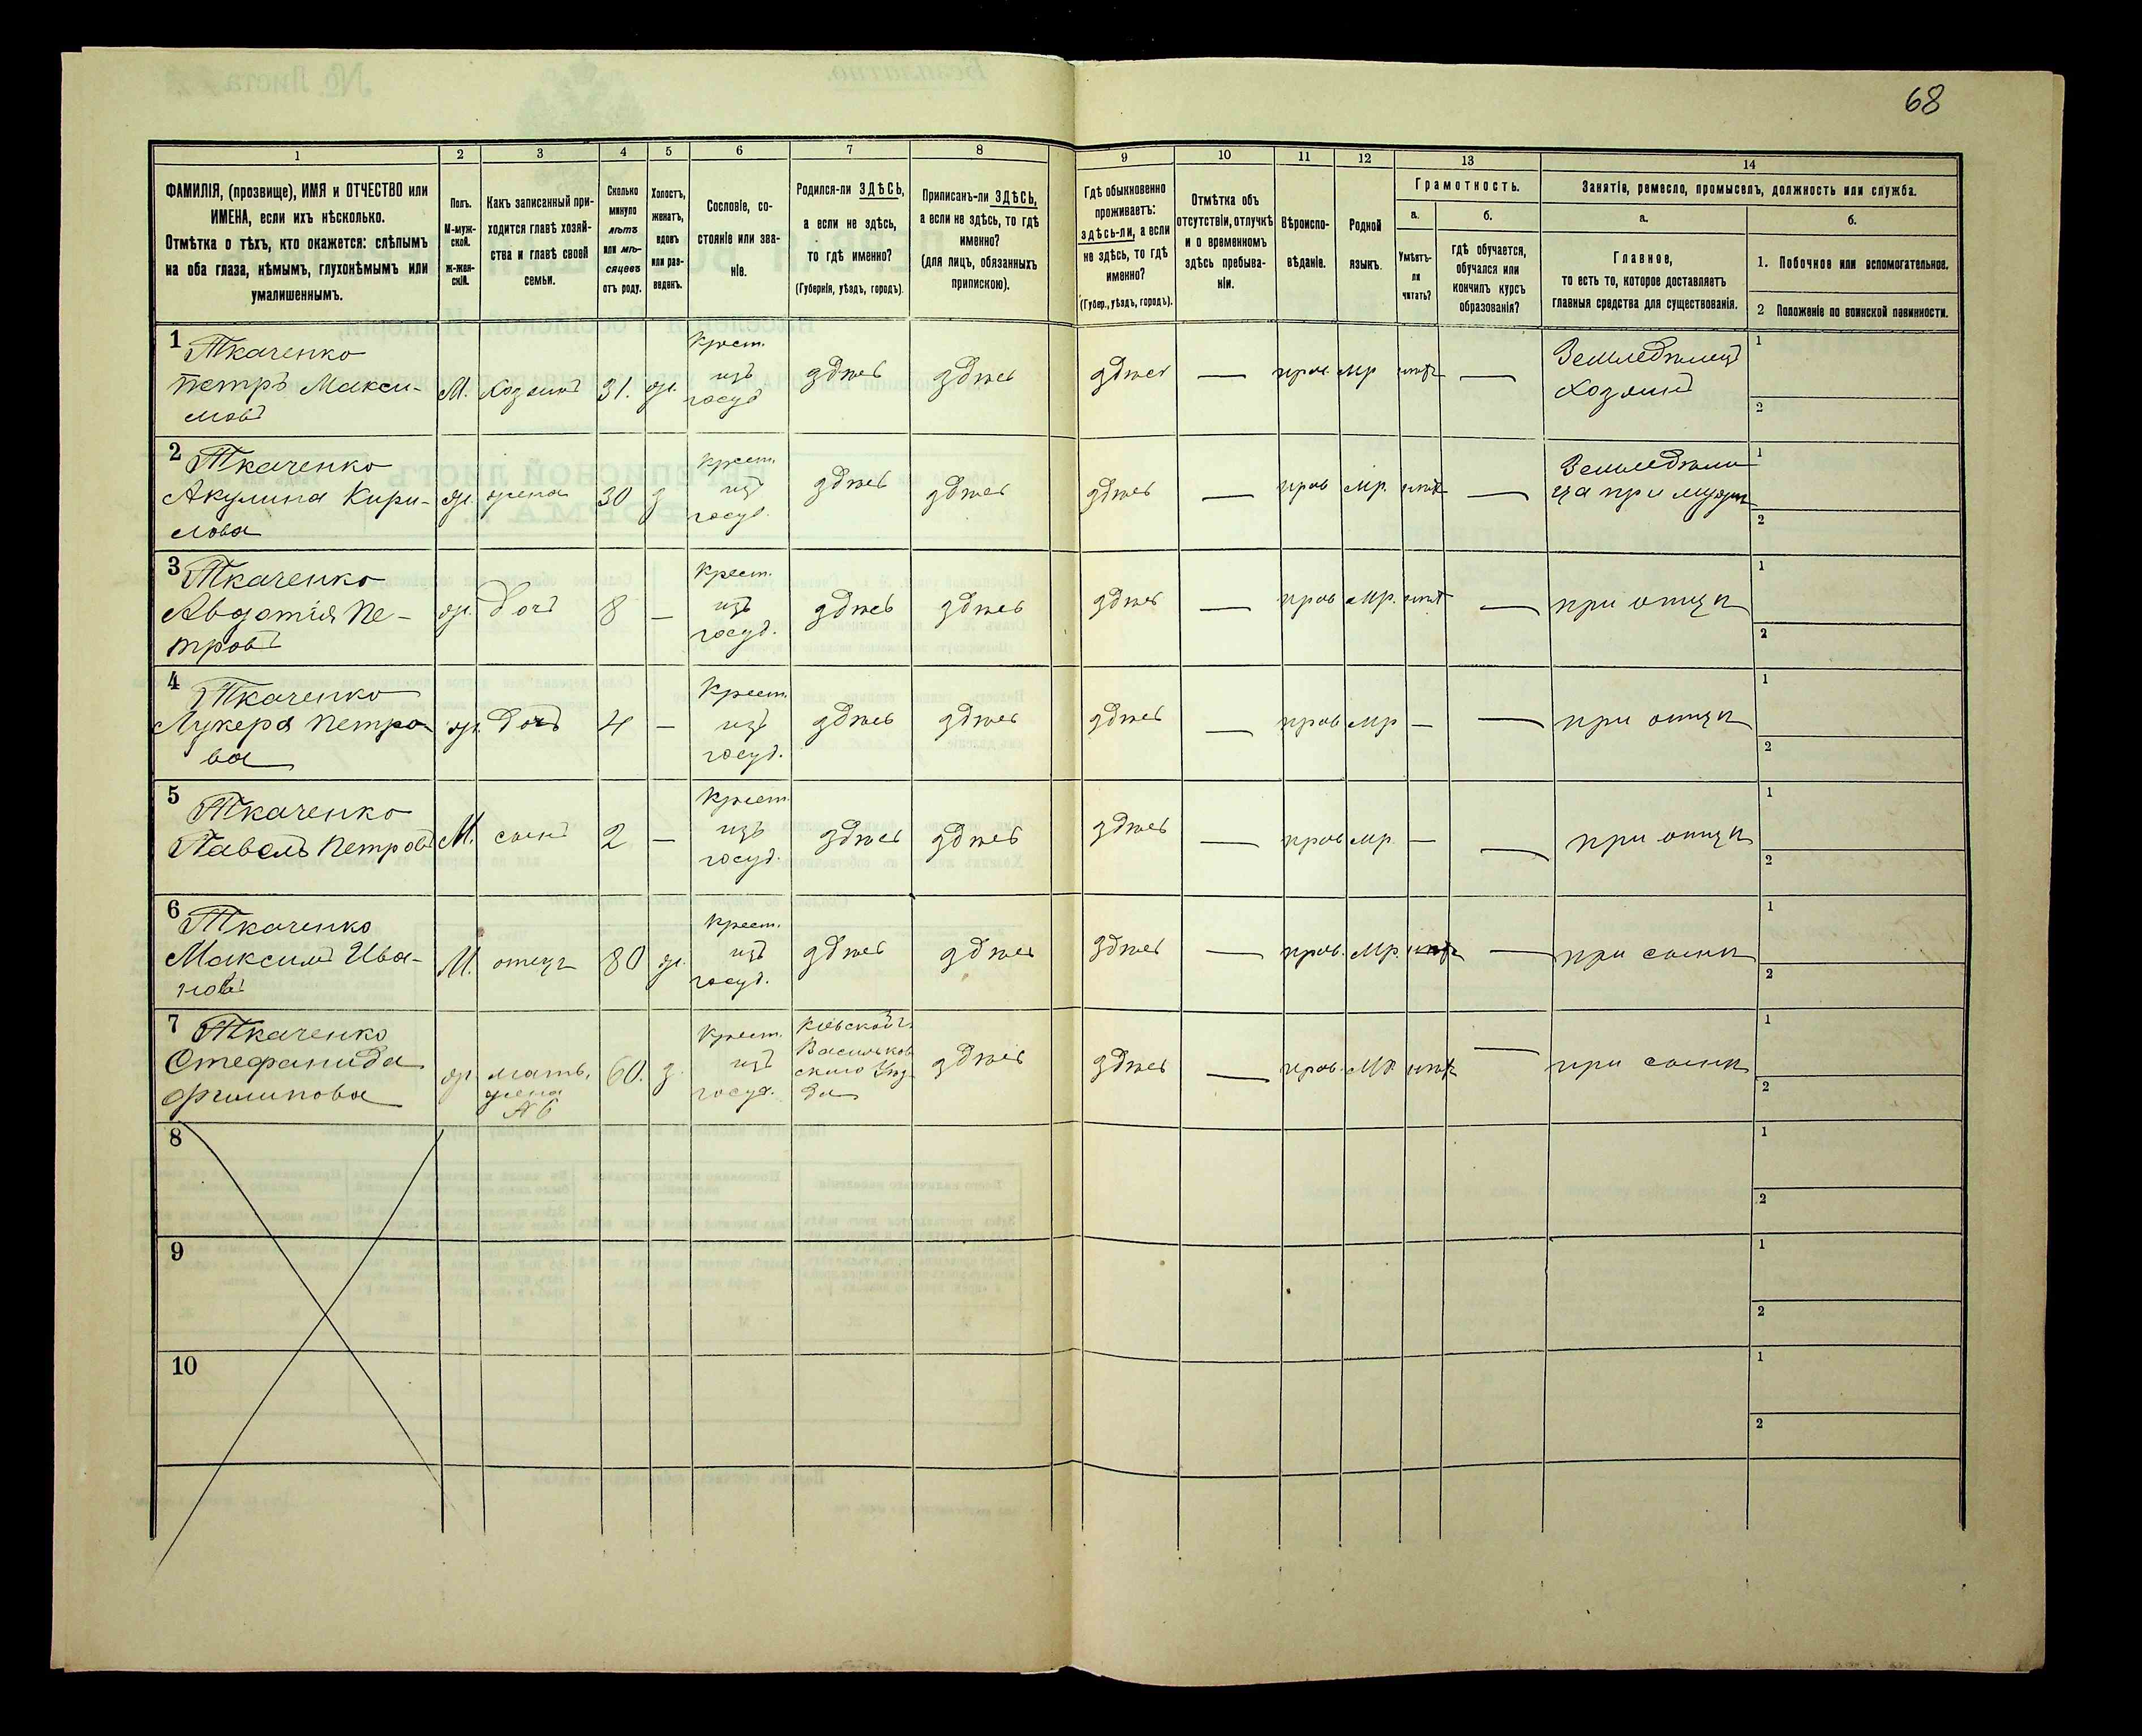 68
1 2 3 4 5 6 7 8 9 10 11 12 13 14
ФАМИЛІЯ, (прозвище), ИМЯ и ОТЧЕСТВО или
ИМЕНА, если ихъ нѣсколько.
Отмѣтка о тѣхъ, кто окажется: слѣпымъ
на оба глаза, нѣмымъ, глухонѣмымъ или
умалишеннымъ.
Полъ.
М-муж-
ской.
Ж-жен-
скій.
Какъ записанный при-
ходится главѣ хозяй-
ства и главѣ своей
семьи.
Сколько
минуло
лѣтъ
или мѣ-
сяцевъ
отъ роду.
Холостъ,
женатъ,
вдовъ
или раз-
веденъ.
Сословіе, со-
стояніе или зва-
ніе.
Родился-ли ЗДѢСЬ,
а если не здѣсь,
то гдѣ именно?
(Губернія, уѣздъ, городъ).
Приписанъ-ли ЗДѢСЬ,
а если не здѣсь, то гдѣ
именно?
(для лицъ, обязанныхъ
припискою).
Гдѣ обыкновенно
проживаетъ:
здѣсь-ли, а если
не здѣсь, то гдѣ
именно?
(Губер., уѣздъ, городъ).
Отмѣтка объ
отсутствіи, отлучкѣ
и о временномъ
здѣсь пребыва-
ніи.
Вѣроиспо-
вѣданіе.
Родной
языкъ.
Грамотность.
а.
Умѣетъ-
ли
читать?
б.
гдѣ обучается,
обучался или
кончилъ курсъ
образованія?
Занятіе, ремесло, промыселъ, должность или служба.
а.
Главное,
то есть то, которое доставляетъ
главныя средства для существованія.
б.
1. Побочное или вспомогательное.
2 Положеніе по воинской повинности.
1
Ткаченко
Петръ Макси-
мовъ
М. Хозяинъ 31. ж.
Крест.
изъ
госуд
здѣсь здѣсь здѣсь — прав. Мр нѣтъ —
Земледѣлецъ
Хозяинъ
1
2
2
Ткаченко
Акулина Кири-
лова
ж. жена 30 з
Крест.
изъ
госуд.
здѣсь здѣсь здѣсь — прав Мр. нѣтъ —
Земледѣли
ца при мужѣ
1
2
3
Ткаченко
Авдотія Пе-
тровъ
ж. дочь 8 —
Крест.
изъ
госуд.
здѣсь здѣсь здѣсь — прав Мр. нѣтъ — при отцѣ
1
2
4
Ткаченко
Лукера Петро
ва
ж. дочь 4 —
Крест.
изъ
госуд.
здѣсь здѣсь здѣсь — прав Мр — — при отцѣ
1
2
5
Ткаченко
Павелъ Петровъ
М. сынъ 2 —
Крест.
изъ
госуд.
здѣсь здѣсь здѣсь — прав Мр. — — при отцѣ
1
2
6
Ткаченко
Максимъ Ива-
новъ
М. отецъ 80 ж.
Крест.
изъ
госуд.
здѣсь здѣсь здѣсь — прав. Мр. нѣтъ — при сынѣ
1
2
7
Ткаченко
Стефанида
Филипова
ж. мать,
жена
№ 6
60. з.
Крест.
изъ
госуд.
Кіевской г.
Васильков
скаго Уѣз
да
здѣсь здѣсь — прав. Мр. нѣтъ — при сынѣ
1
2
8
1
2
9
1
2
10
1
2